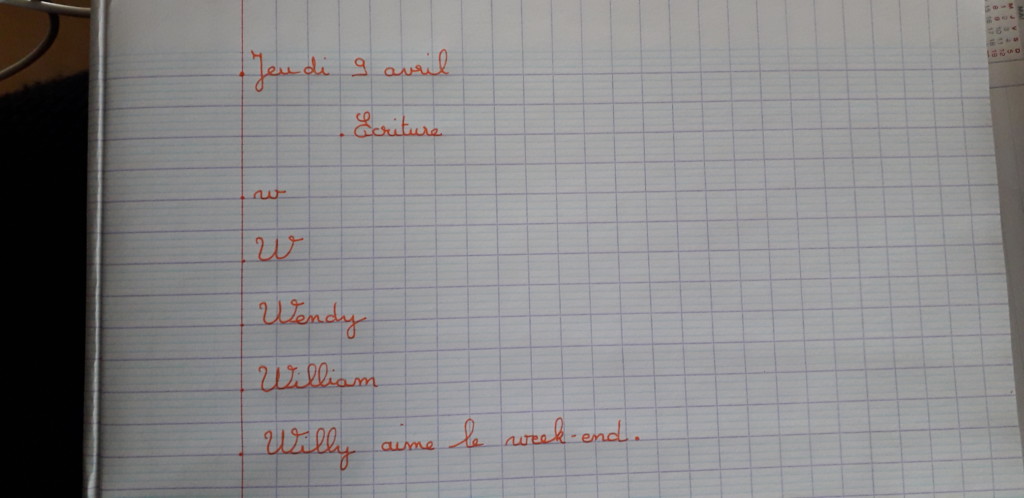 Jeudi 9 avril
Ecriture
w
W
Wendy
William
Willy aime le week-end.